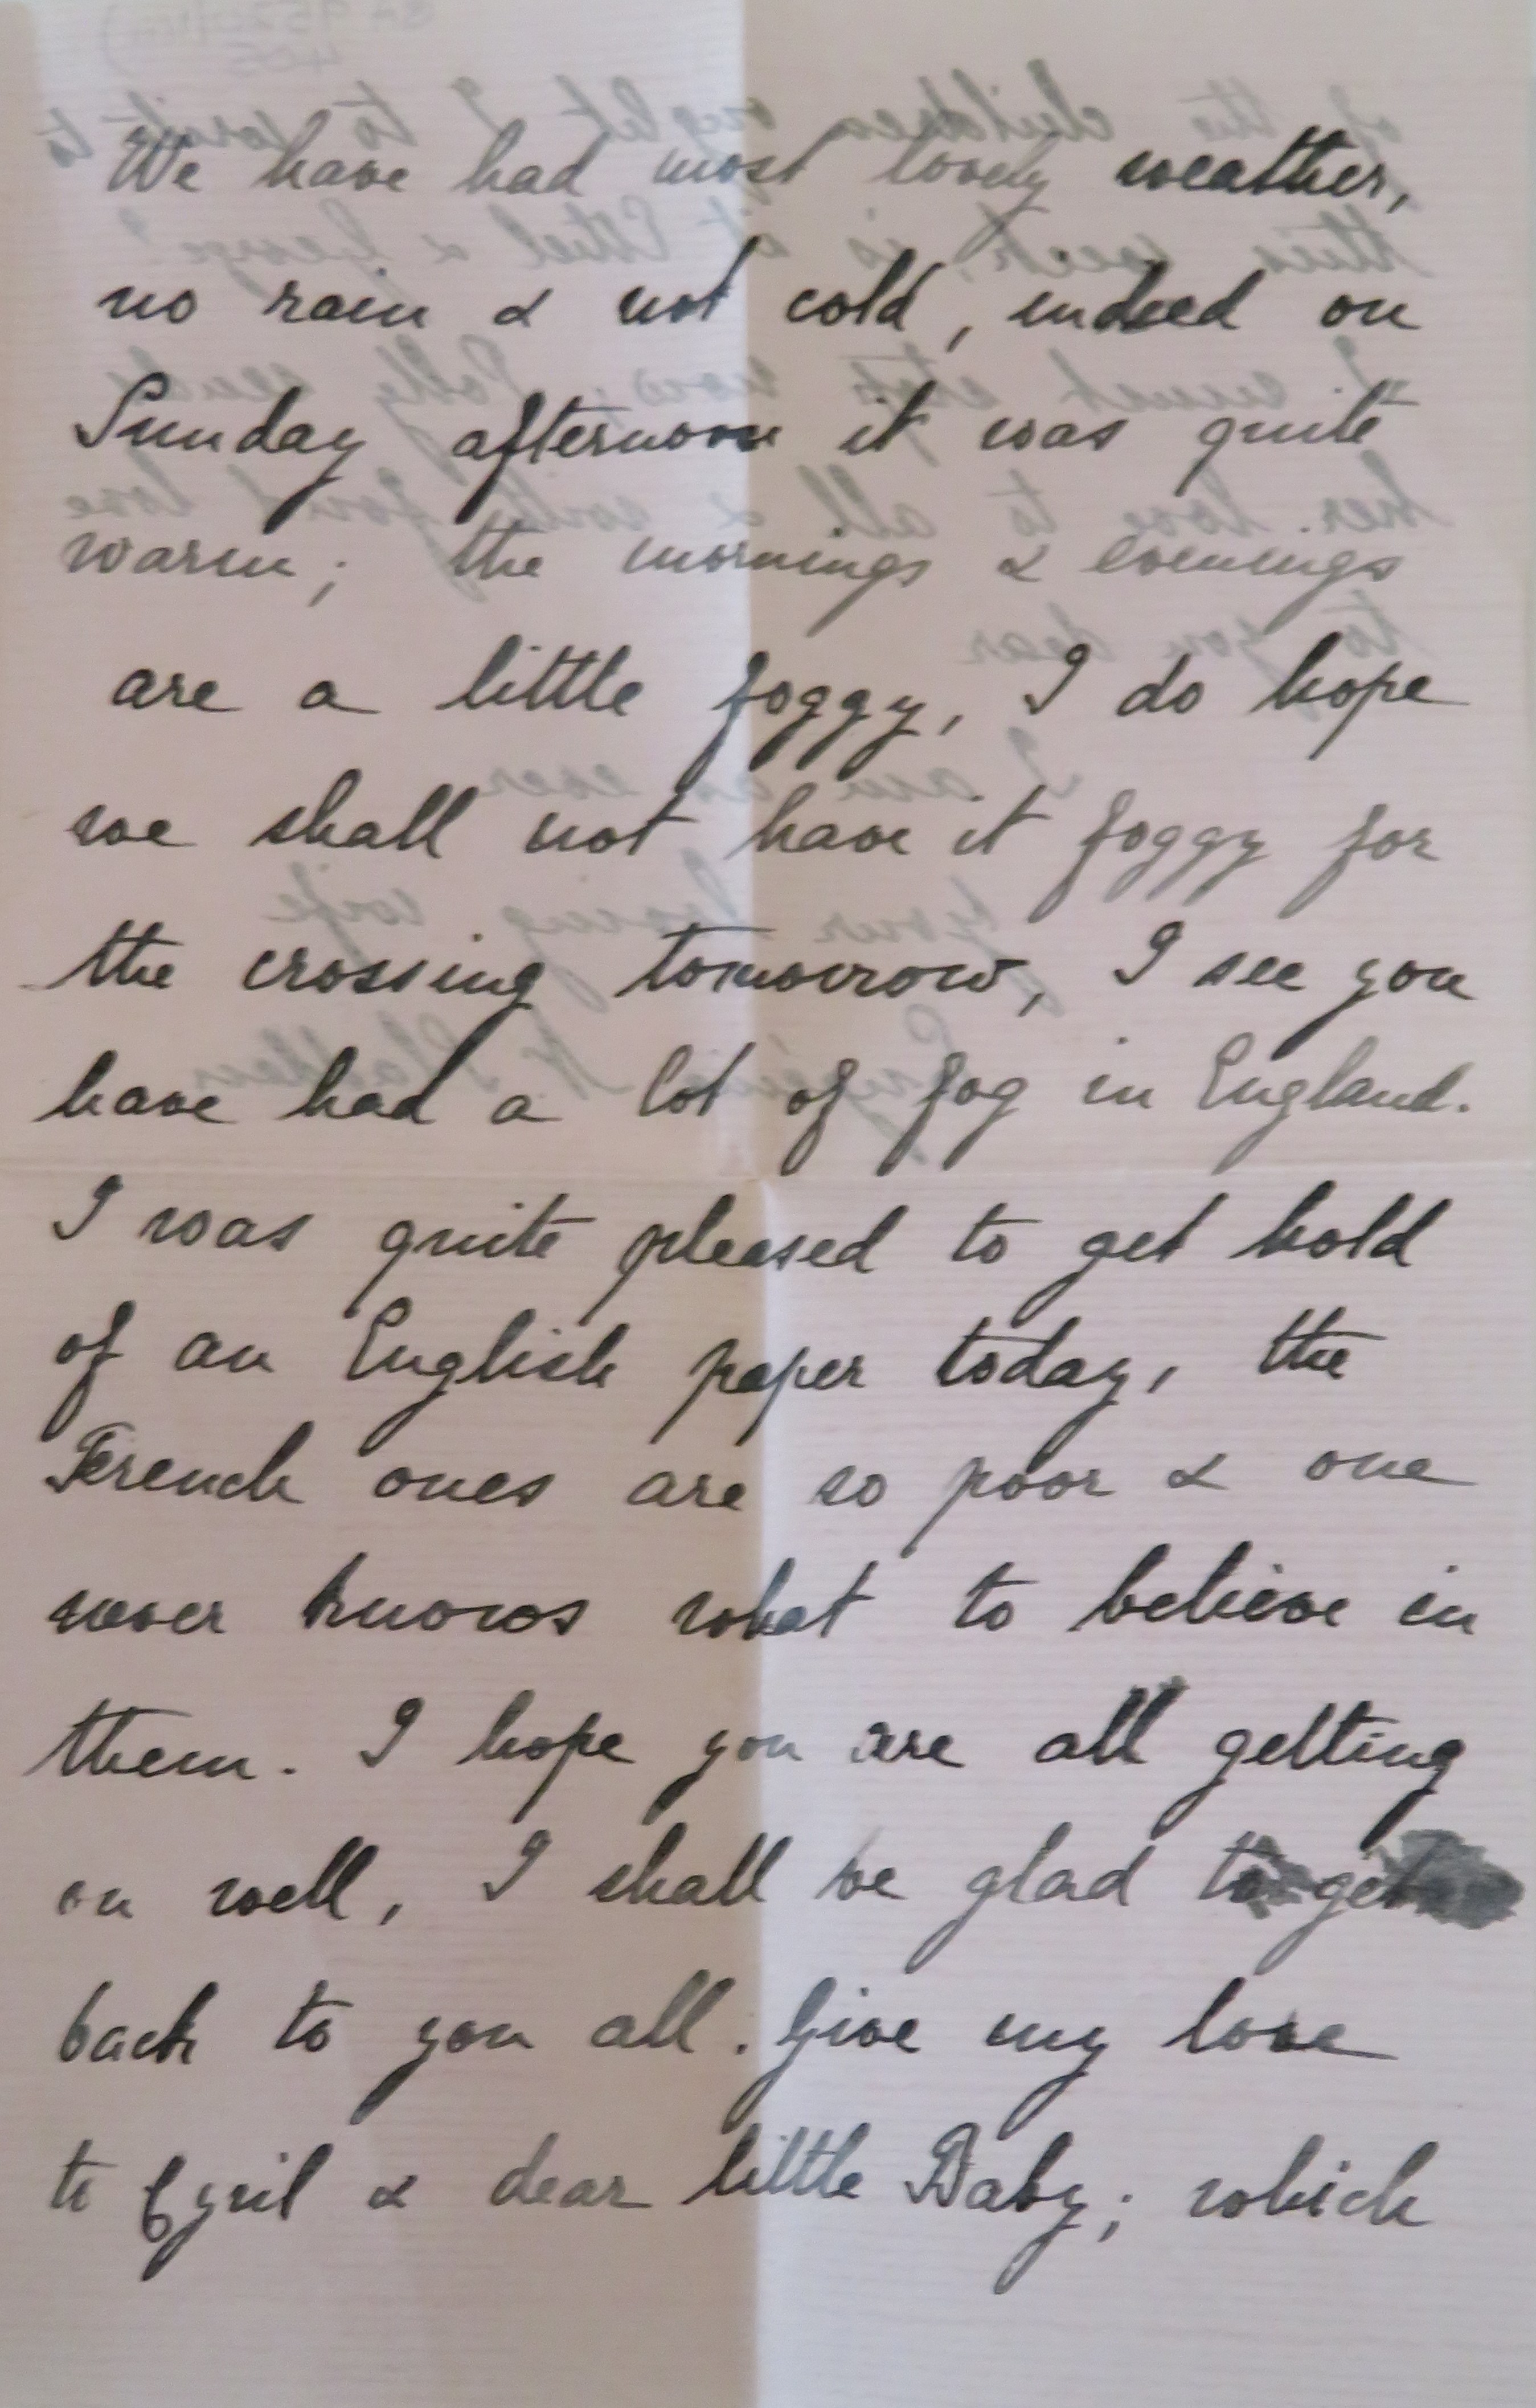 We have had most lovely weather,
no rain & not cold, indeed on
Sunday afternoon it was quite
warm; the mornings & evenings
are a little foggy, I do hope
we shall not have it foggy for
the crossing tomorrow, I see you
have had a lot of fog in England.
I was quite pleased to get hold
of an English paper today, the
French ones are so poor & one
never knows what to believe in
them. I hope you are all getting
on well, I shall be glad to get
back to you all. Give my love
to Cyril & dear little Baby; which